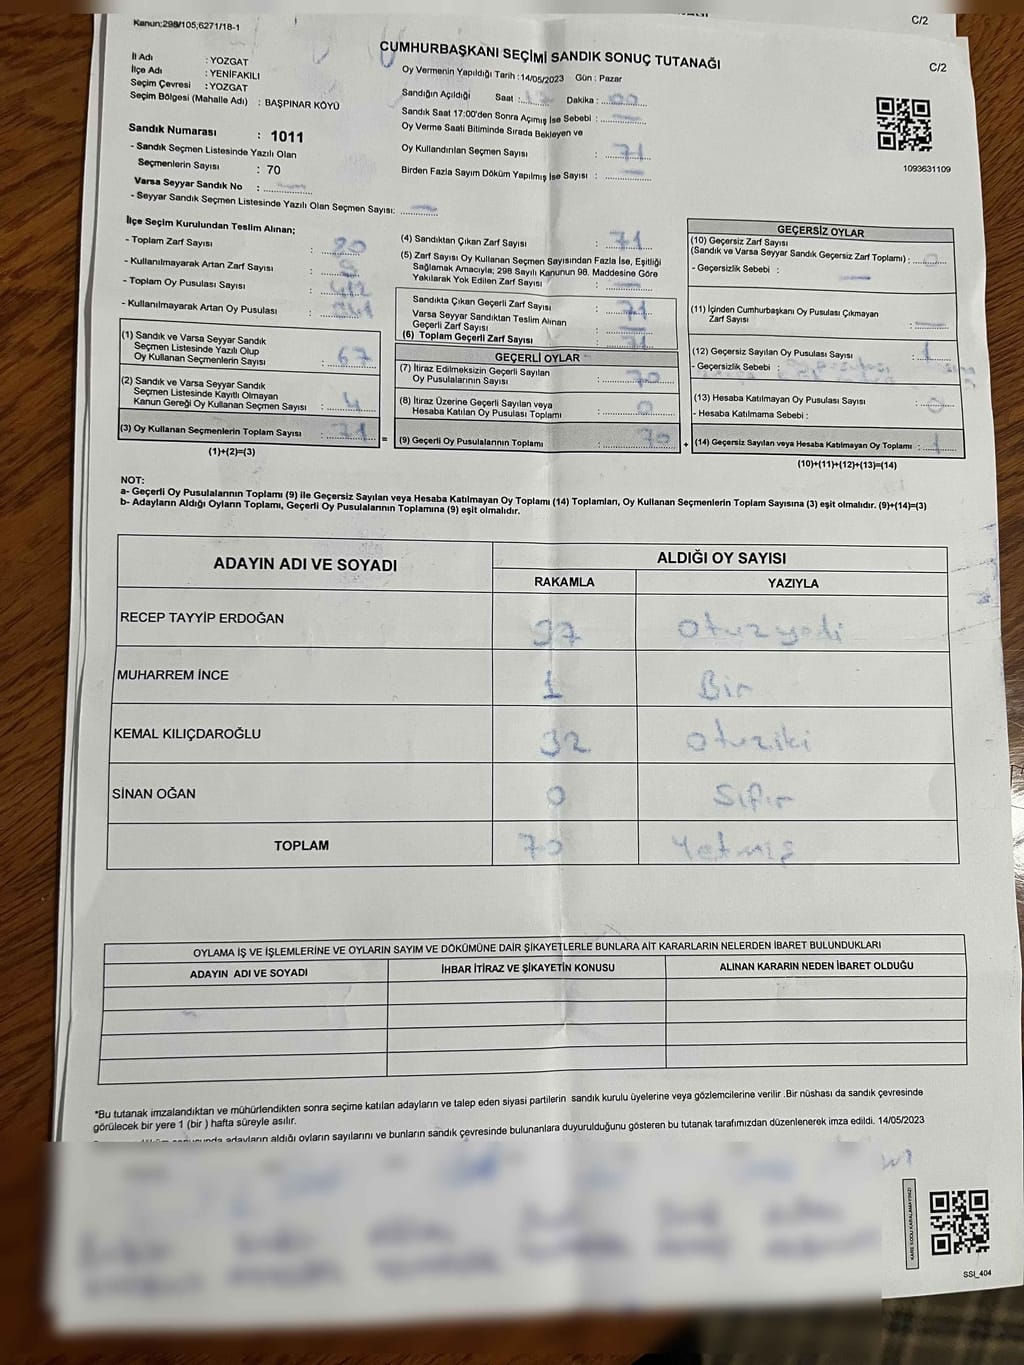 Kanun:298/105,6271/18-1
C/2
C/2
CUMHURBAŞKANI SEÇİMİ SANDIK SONUÇ TUTANAĞI
İl Adı : YOZGAT
İlçe Adı : YENİFAKILI
Seçim Çevresi : YOZGAT
Seçim Bölgesi (Mahalle Adı) : BAŞPINAR KÖYÜ
Sandık Numarası : 1011
- Sandık Seçmen Listesinde Yazılı Olan
Seçmenlerin Sayısı : 70
Varsa Seyyar Sandık No :
- Seyyar Sandık Seçmen Listesinde Yazılı Olan Seçmen Sayısı:
Oy Vermenin Yapıldığı Tarih :14/05/2023 Gün : Pazar
Sandığın Açıldığı Saat : 17 Dakika : 00
Sandık Saat 17:00'den Sonra Açımış İse Sebebi :
Oy Verme Saati Bitiminde Sırada Bekleyen ve
Oy Kullandırılan Seçmen Sayısı : 71
Birden Fazla Sayım Döküm Yapılmış İse Sayısı :
1093631109
İlçe Seçim Kurulundan Teslim Alınan;
- Toplam Zarf Sayısı :
- Kullanılmayarak Artan Zarf Sayısı :
- Toplam Oy Pusulası Sayısı :
- Kullanılmayarak Artan Oy Pusulası :
(1) Sandık ve Varsa Seyyar Sandık
Seçmen Listesinde Yazılı Olup
Oy Kullanan Seçmenlerin Sayısı : 67
(2) Sandık ve Varsa Seyyar Sandık
Seçmen Listesinde Kayıtlı Olmayan
Kanun Gereği Oy Kullanan Seçmen Sayısı : 4
(3) Oy Kullanan Seçmenlerin Toplam Sayısı : 71
(1)+(2)=(3)
=
(4) Sandıktan Çıkan Zarf Sayısı : 71
(5) Zarf Sayısı Oy Kullanan Seçmen Sayısından Fazla İse, Eşitliği
Sağlamak Amacıyla; 298 Sayılı Kanunun 98. Maddesine Göre
Yakılarak Yok Edilen Zarf Sayısı :
Sandıkta Çıkan Geçerli Zarf Sayısı : 71
Varsa Seyyar Sandıktan Teslim Alınan
Geçerli Zarf Sayısı :
(6) Toplam Geçerli Zarf Sayısı : 71
GEÇERLİ OYLAR
(7) İtiraz Edilmeksizin Geçerli Sayılan
Oy Pusulalarının Sayısı : 70
(8) İtiraz Üzerine Geçerli Sayılan veya
Hesaba Katılan Oy Pusulası Toplamı : 0
(9) Geçerli Oy Pusulalarının Toplamı : 70
+
GEÇERSİZ OYLAR
(10) Geçersiz Zarf Sayısı
(Sandık ve Varsa Seyyar Sandık Geçersiz Zarf Toplamı) : 0
- Geçersizlik Sebebi :
(11) İçinden Cumhurbaşkanı Oy Pusulası Çıkmayan
Zarf Sayısı :
(12) Geçersiz Sayılan Oy Pusulası Sayısı : 1
- Geçersizlik Sebebi :
(13) Hesaba Katılmayan Oy Pusulası Sayısı : 0
- Hesaba Katılmama Sebebi :
(14) Geçersiz Sayılan veya Hesaba Katılmayan Oy Toplamı : 1
(10)+(11)+(12)+(13)=(14)
NOT:
a- Geçerli Oy Pusulalarının Toplamı (9) ile Geçersiz Sayılan veya Hesaba Katılmayan Oy Toplamı (14) Toplamları, Oy Kullanan Seçmenlerin Toplam Sayısına (3) eşit olmalıdır. (9)+(14)=(3)
b- Adayların Aldığı Oyların Toplamı, Geçerli Oy Pusulalarının Toplamına (9) eşit olmalıdır.
ADAYIN ADI VE SOYADI ALDIĞI OY SAYISI
RAKAMLA YAZIYLA
RECEP TAYYİP ERDOĞAN 37 otuzyedi
MUHARREM İNCE 1 Bir
KEMAL KILIÇDAROĞLU 32 otuziki
SİNAN OĞAN 0 Sıfır
TOPLAM 70 Yetmiş
OYLAMA İŞ VE İŞLEMLERİNE VE OYLARIN SAYIM VE DÖKÜMÜNE DAİR ŞİKAYETLERLE BUNLARA AİT KARARLARIN NELERDEN İBARET BULUNDUKLARI
ADAYIN ADI VE SOYADI İHBAR İTİRAZ VE ŞİKAYETİN KONUSU ALINAN KARARIN NEDEN İBARET OLDUĞU
*Bu tutanak imzalandıktan ve mühürlendikten sonra seçime katılan adayların ve talep eden siyasi partilerin sandık kurulu üyelerine veya gözlemcilerine verilir .Bir nüshası da sandık çevresinde
görülecek bir yere 1 (bir ) hafta süreyle asılır.
adayların aldığı oyların sayılarını ve bunların sandık çevresinde bulunanlara duyurulduğunu gösteren bu tutanak tarafımızdan düzenlenerek imza edildi. 14/05/2023
KARE KODU KARALAMAYINIZ!
SSI_404